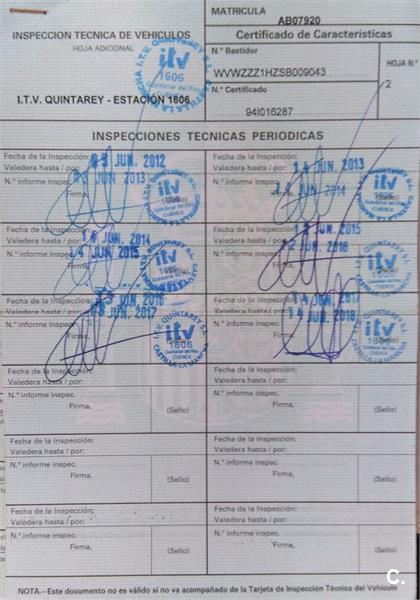 MATRICULA
AB07920
INSPECCION TECNICA DE VEHICULOS
HOJA ADICIONAL
Certificado de Características
N.º Bastidor
HOJA N.º
WVWZZZ1HZSB009043
2
N.º Certificado
I.T.V. QUINTAREY - ESTACIÓN 1606
94I016287
itv
1606
INSPECCIONES TECNICAS PERIODICAS
Fecha de la Inspección: JUN. 2012
Valedera hasta / por: JUN 2013
N.º informe inspec.
Fecha de la Inspección: 14 JUN. 2013
Valedera hasta / por: JUN 2014
N.º informe inspec.
itv
1606
CUENCA
itv
1606
CUENCA
Fecha de la Inspección: JUN. 2014
Valedera hasta / por: 14 JUN. 2015
N.º informe inspec.
Fecha de la Inspección: JUN. 2015
Valedera hasta / por: JUN 2016
N.º informe inspec.
itv
itv
Fecha de la Inspección: JUN 2016
Valedera hasta / por: JUN. 2017
N.º informe inspec.
Fecha de la Inspección: JUN. 2017
Valedera hasta / por: 14 JUN. 2018
N.º informe inspec.
I.T.V. QUINTAREY S.L.
itv
1606
CUENCA
CASTILLA-LA MANCHA
itv
Fecha de la Inspección:
Valedera hasta / por:
N.º informe inspec.
Firma,
(Sello)
Fecha de la Inspección:
Valedera hasta / por:
N.º informe inspec.
Firma,
(Sello)
Fecha de la Inspección:
Valedera hasta / por:
N.º informe inspec.
Firma,
(Sello)
Fecha de la Inspección:
Valedera hasta / por:
N.º informe inspec.
Firma,
(Sello)
Fecha de la Inspección:
Valedera hasta / por:
N.º informe inspec.
Firma,
(Sello)
Fecha de la Inspección:
Valedera hasta / por:
N.º informe inspec.
Firma,
(Sello)
NOTA.- Este documento no es válido si no va acompañado de la Tarjeta de Inspección Técnica del Vehículo
C.